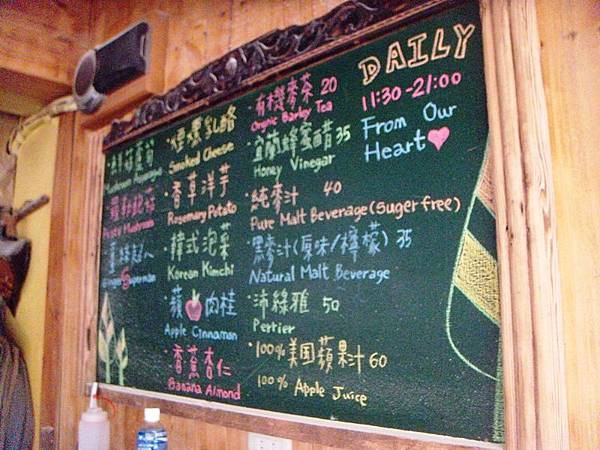 Mushroom Asparagus
Fruity Mushroom
Ginger Superman
煙燻乳酪
Smoked Cheese
香草洋芋
Rosemary Potato
韓式泡菜
Korean Kimchi
蘋 肉桂
Apple Cinnaman
香蕉杏仁
Banana Almond
有機麥茶 20
Orgnic Barley Tea
宜蘭蜂蜜醋 35
Honey Vinegar
純麥汁 40
Pure Malt Beverage(Suger free)
黑麥汁(原味/檸檬) 35
Natural Malt Beverage
沛綠雅 50
Perrier
100%美国蘋果汁 60
100% Apple Juice
DAILY
11:30-21:00
From Our
Heart